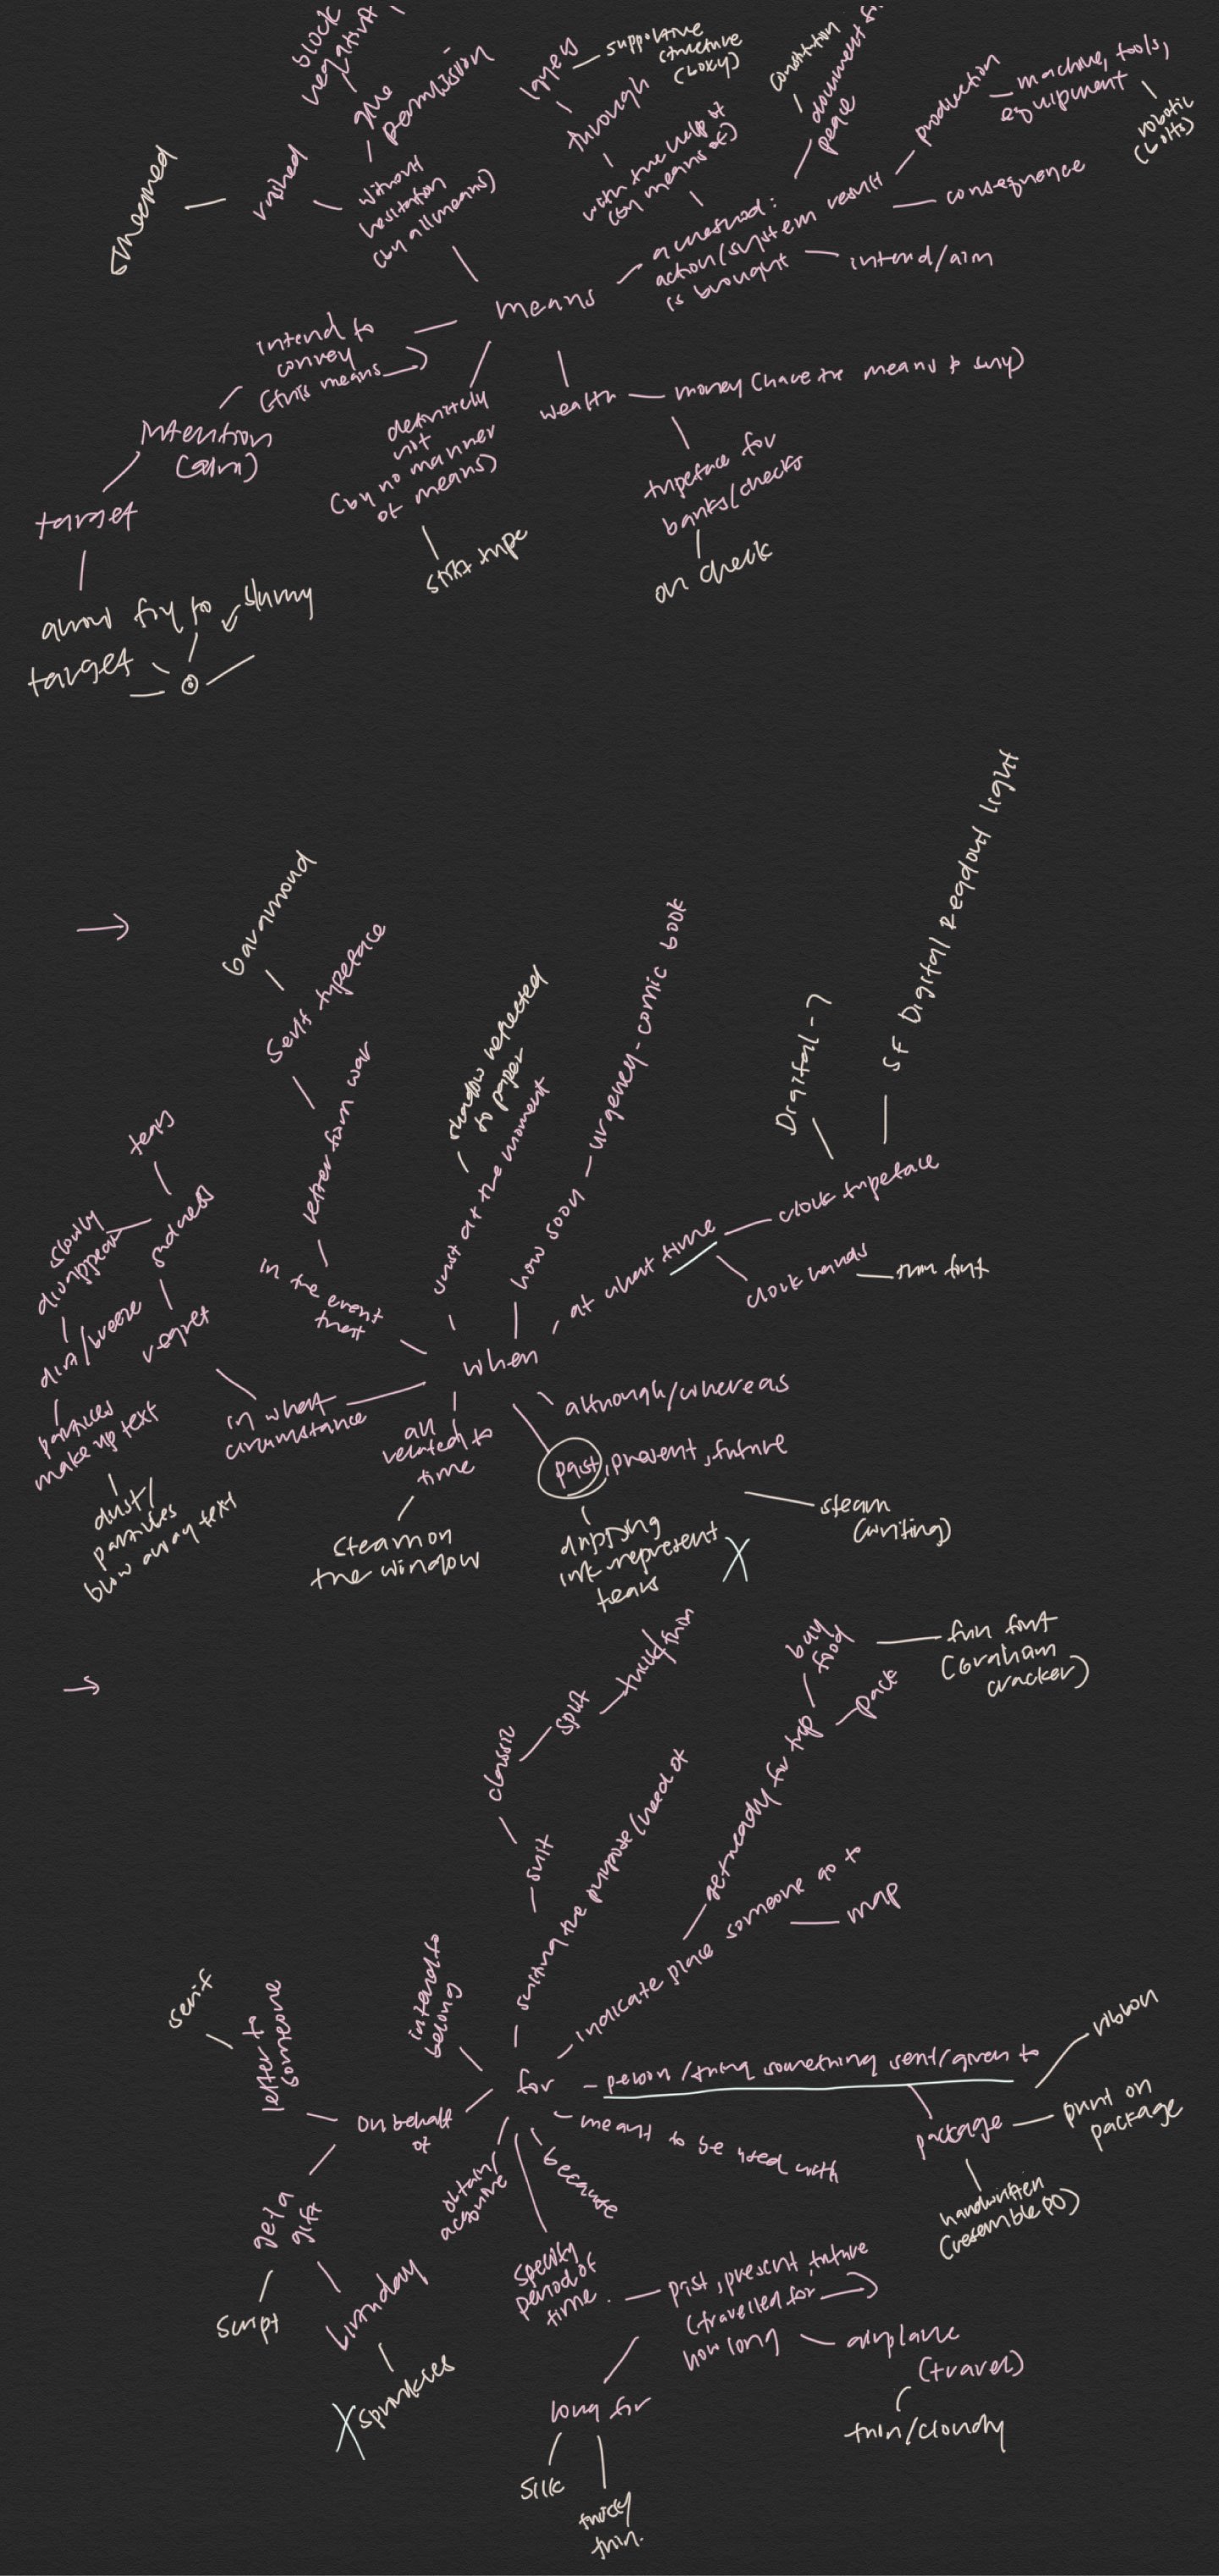 block
negative
give
permission
layers
supportive
structure
(boxy)
through
constitution
document for
peace
production
machine, tools,
equipment
robotic
(bolts)
smeared
rushed
without
hesitation
(by all means)
with the help of
(by means of)
a method:
action/system result
is brought
consequence
intend/aim
means
intend to
convey
(this means →)
intention
(aim)
target
arrow fly to
target
definitely
not
(by no manner
of means)
wealth
money (have the means to buy)
typeface for
banks/checks
on check
→
Garamond
serif typeface
letter from war
in the event
that
shadow reflected
to paper
just at the moment
how soon
urgency - comic book
Digital-7
SF Digital Readout Light
clock typeface
at what time
clock hands
thin font
tears
sadness
slowly
disappear
dust/breeze
regret
particles
make up text
dust/
particles
blow away text
in what
circumstance
when
all
related to
time
steam on
the window
although/whereas
past, present, future
dripping
ink represent
tears
X
steam
(writing)
→
thick/thin
split
classic
suit
suiting the purpose/need of
buy
food
fun font
(Graham
cracker)
pack
get ready for trip
indicate place someone go to
map
intend to
belong
serif
letter to
someone
for
person/thing something sent/given to
ribbon
package
print on
package
handwritten
(resemble PO)
on behalf
of
meant to be used with
obtain/
acquire
because
get a
gift
script
birthday
X sprinkles
specify
period of
time
past, present, future
(travelled for →)
how long
airplane
(travel)
thin/cloudy
long for
silk
thin.